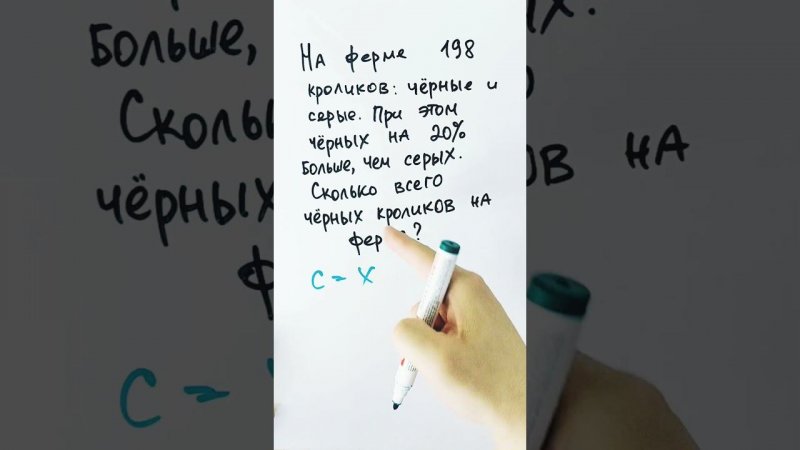 На ферме 198
кроликов: чёрные и
серые. При этом
чёрных на 20%
больше, чем серых.
Сколько всего
чёрных кроликов на
ферме?
С = х